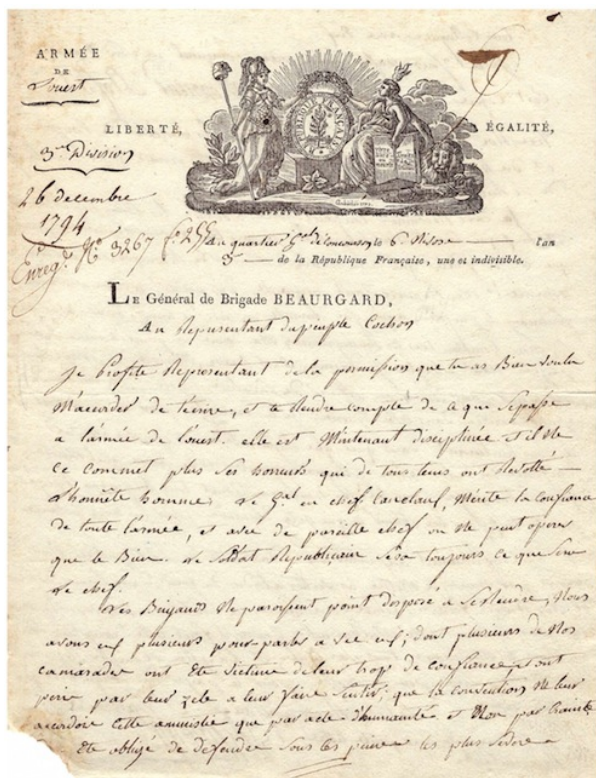 ARMÉE
DE
L'ouest
LIBERTÉ,
ÉGALITÉ,
3me Division
26 decembre
1794
Enreg. N° 3267 f. 255
RÉPUBLIQUE FRANÇAISE
au quartier Gal de le 6 Nivose l'an
3me de la République Française, une et indivisible.
LE Général de Brigade BEAURGARD,
Au Representant du peuple Cochon
Je profite Representant de la permission que tu as Bien voulu
M'accorder de t'ecrire, et te Rendre compte de ce que se passe
a l'armée de l'ouest. elle est Mintenant disciplinée et il Ne
ce commet plus ses horreurs qui de tous tems ont Revolté
L'honnête homme. Le Gal en chef Canclaux, Mérite la confiance
de toute l'armée, et avec de pareille chef on Ne peut operer
que le Bien. Le Soldat Republiquein Sera toujours ce que Sera
Le chef.
Les Brigands Ne paroissent point disposé a Se Rendre, Nous
avons eux plusieurs pour parlés avec eux; dont plusieurs de Nos
camarades ont Été victime de leur trop de confiance, sont
peris par leur zele a leur faire Sentir; que la convention Ne leur
accordoit cette amnistie que par acte d'humanité et Non par crainte
Été obligé de deffendre Sous les peines les plus Severe